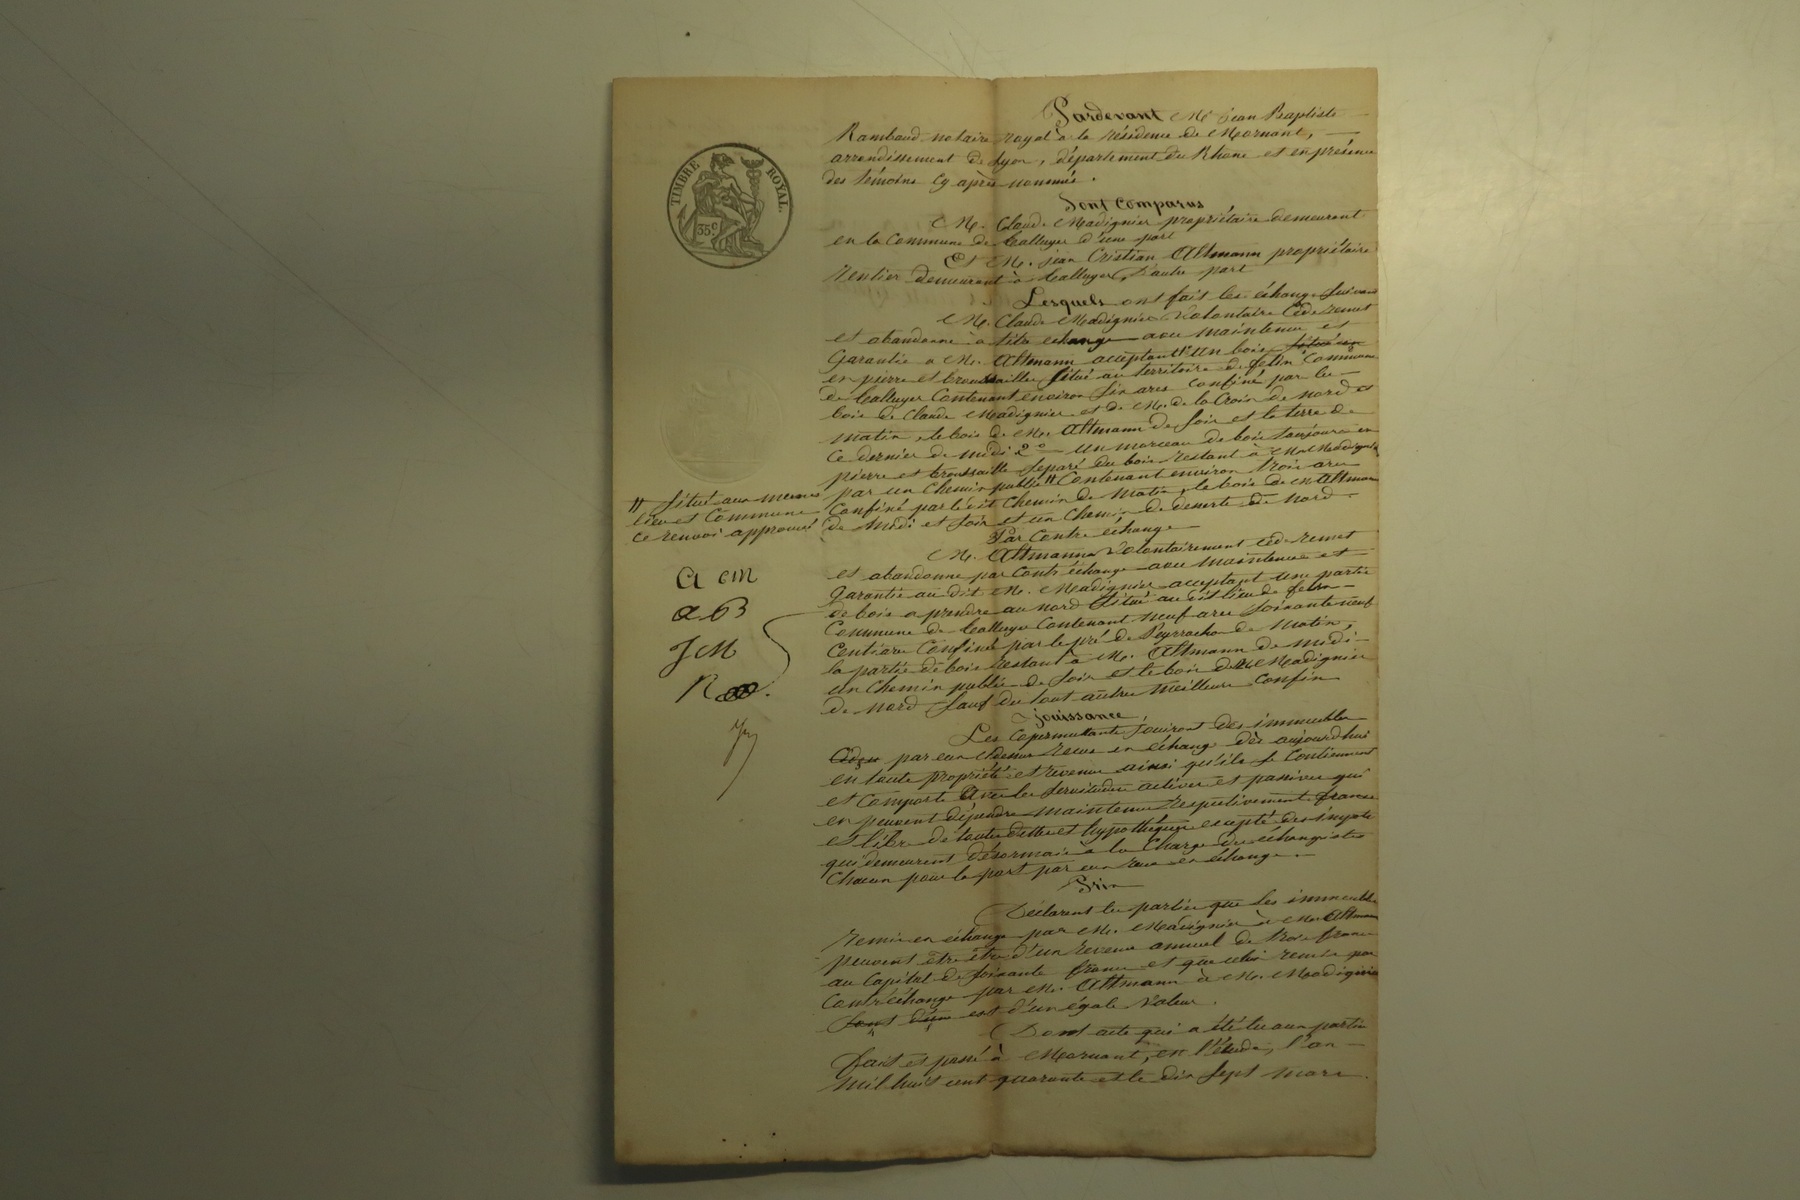 Pardevant Me Jean Baptiste
Rambaud notaire royal à la résidence de Mornant,
arrondissement de Lyon, département du Rhone et en présence
des témoins cy après nommés.
TIMBRE ROYAL.
35c
Sont Comparus
M. Claude Madignier propriétaire demeurant
en la Commune de talluyer d'une part
Et M. jean Cristian Altmann propriétaire
rentier demeurant à talluyer, d'autre part
Lesquels ont fait les échanges suivans
M. Claude Madignier Volontaire Cède remet
et abandonne à titre echange avec maintenue et
Garantie a M. Altmann acceptant 1° un bois situé en
en pierre et broussaille situé au territoire de felin Commune
de talluyer Contenant environ six ares Confiné par le
bois de Claude Madignier et de M. de la Croix de nord et
matin, le bois de M. Altmann de soir et la terre de
Ce dernier de midi 2° un morceau de bois toujours en
pierre et broussaille séparé du bois restant à M. Madignier
par un Chemin public // Contenant environ trois ares
Confiné par led it Chemin de matin, le bois de M. Altmann
de midi et soir et un Chemin de deserte de nord.
// situé aux mêmes
lieu et Commune
Ce renvoi approuvé
Par Contre échange
M. Altmann Volontairement Cède remet
et abandonne par Contr'échange avec maintenue et
Garantie au dit M. Madignier acceptant une partie
de bois a prendre au nord situé au dit lieu de felin
Commune de talluyer Contenant neuf ares soixante neuf
Centiares Confiné par le pré de Peyrrachon de matin,
la partie de bois restant à M. Altmann de midi
un Chemin public de soir et le bois de M. Madignier
de nord sauf du tout autre meilleur Confin
A CM
a B
J M
R
jouissance
Les Copermuttants jouiront des immeubles
Cédés par eux Dessus recus en échange dès aujourd'hui
en toute propriété et revenu ainsi qu'ils se Contiennent
et Comporte Avec les servitudes actives et passives qui
en peuvent dépendre maintenus respectivement francs
et libre de toutes dettes et hypothèques excepté des impots
qui demeurent désormais à la Charge des échangistes
Chacun pour la part par eux recue en échange.
Prix
Déclarent les parties que les immeubles
remis en échange par M. Madignier à M. Altmann
peuvent être être d'un revenu annuel de trois francs
au Capital de soixante francs et que celui remis par
Contr'échange par M. Altmann à M. Madignier
sont d'un est d'un égale Valeur.
Dont acte qui a été lu aux parties
fait et passé à Mornant, en l'étude, l'an
mil huit cent quarante et le dix sept mars.